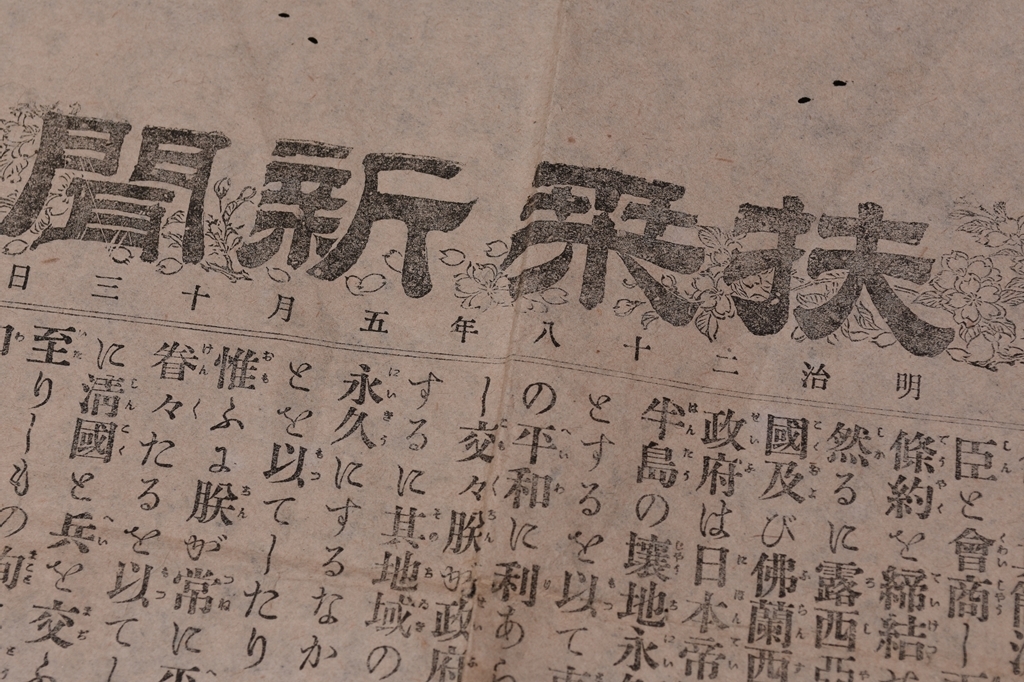 扶桒新聞
明治二十八年五月十三日
臣と會商し
條約を締結
然るに露西亞
國及び佛蘭西
政府は日本帝
半島の壤地永
とするを以て
の平和に利あら
し交々朕が政府
するに其地域の
永久にするなか
とを以てしたり
惟ふに朕が常に平
眷々たるを以てし
に淸國と兵を交ふ
至りしもの洵